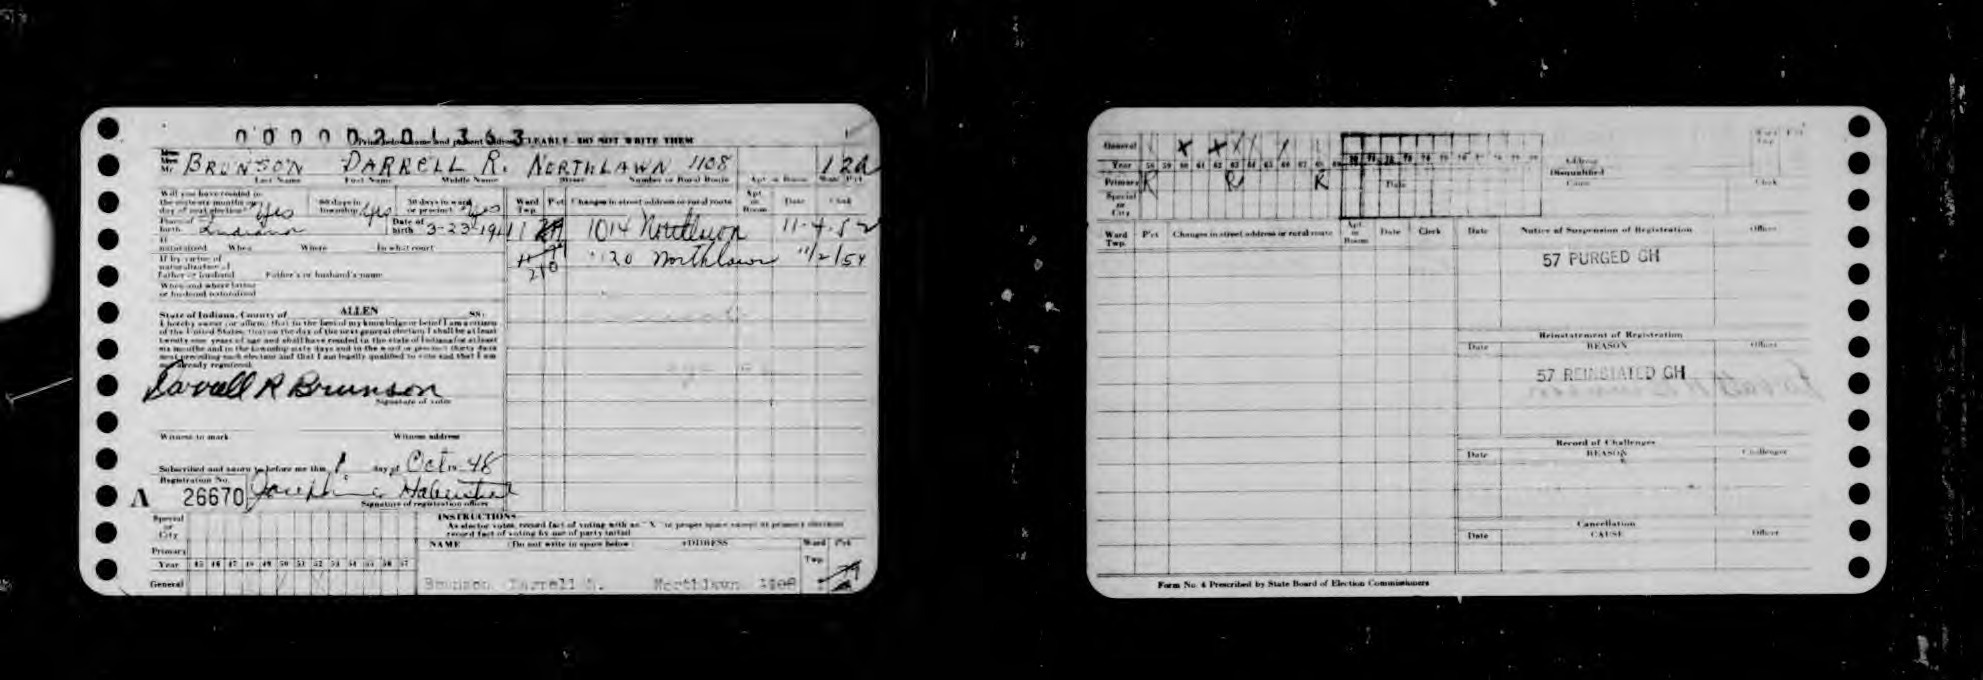 0 0 0 0 0 2 0 1 3 6 3
CLEARLY - DO NOT WRITE THEM
Mr. BRUNSON DARRELL R. NORTHLAWN 1108 12A
Last Name First Name Middle Name Street Number or Rural Route Apt. or Room Ward Pct.
Will you have resided in the state six months on day of next election? Yes 60 days in township Yes 30 days in ward or precinct Yes
Ward Twp. Pct. Changes in street address or rural route Apt. or Room Date Clerk
Place of birth Indiana Date of birth 3-23-1911
1014 Northlawn 11-4-52
1120 Northlawn 11/2/54
210
If naturalized When Where In what court
If by virtue of naturalization of Father or husband Father's or husband's name
When and where father or husband naturalized
State of Indiana, County of ALLEN SS:
I hereby swear (or affirm) that to the best of my knowledge or belief I am a citizen
of the United States, that on the day of the next general election I shall be at least
twenty-one years of age and shall have resided in the state of Indiana for at least
six months and in the township sixty days and in the ward or precinct thirty days
next preceding such election and that I am legally qualified to vote and that I am
not already registered.
Darrell R Brunson
Signature of voter
Witness to mark Witness address
Subscribed and sworn to before me this 1 day of Oct 19 48
Registration No.
A 26670
Signature of registration officer
Special or City
Primary
Year 45 46 47 48 49 50 51 52 53 54 55 56 57
General
INSTRUCTIONS
As elector votes, record fact of voting with an "X" in proper space except at primary elections
record fact of voting by use of party initial
NAME (Do not write in space below) ADDRESS Ward Twp. Pct.
Brunson Darrell R. Northlawn 1108
General X X X X X
Year 58 59 60 61 62 63 64 65 66 67 68 69 70 71 72 73 74 75 76 77 78 79 80
Primary R R R
Special or City
Address
Disqualified
Cause
Date
Clerk
Ward Twp. Pct.
Ward Twp. P'ct Changes in street address or rural route Apt. or Room Date Clerk
Date Notice of Suspension of Registration Officer
57 PURGED GH
Reinstatement of Registration
Date REASON Officer
57 REINSTATED GH
Record of Challenges
Date REASON Challenger
Cancellation
Date CAUSE Officer
Form No. 4 Prescribed by State Board of Election Commissioners